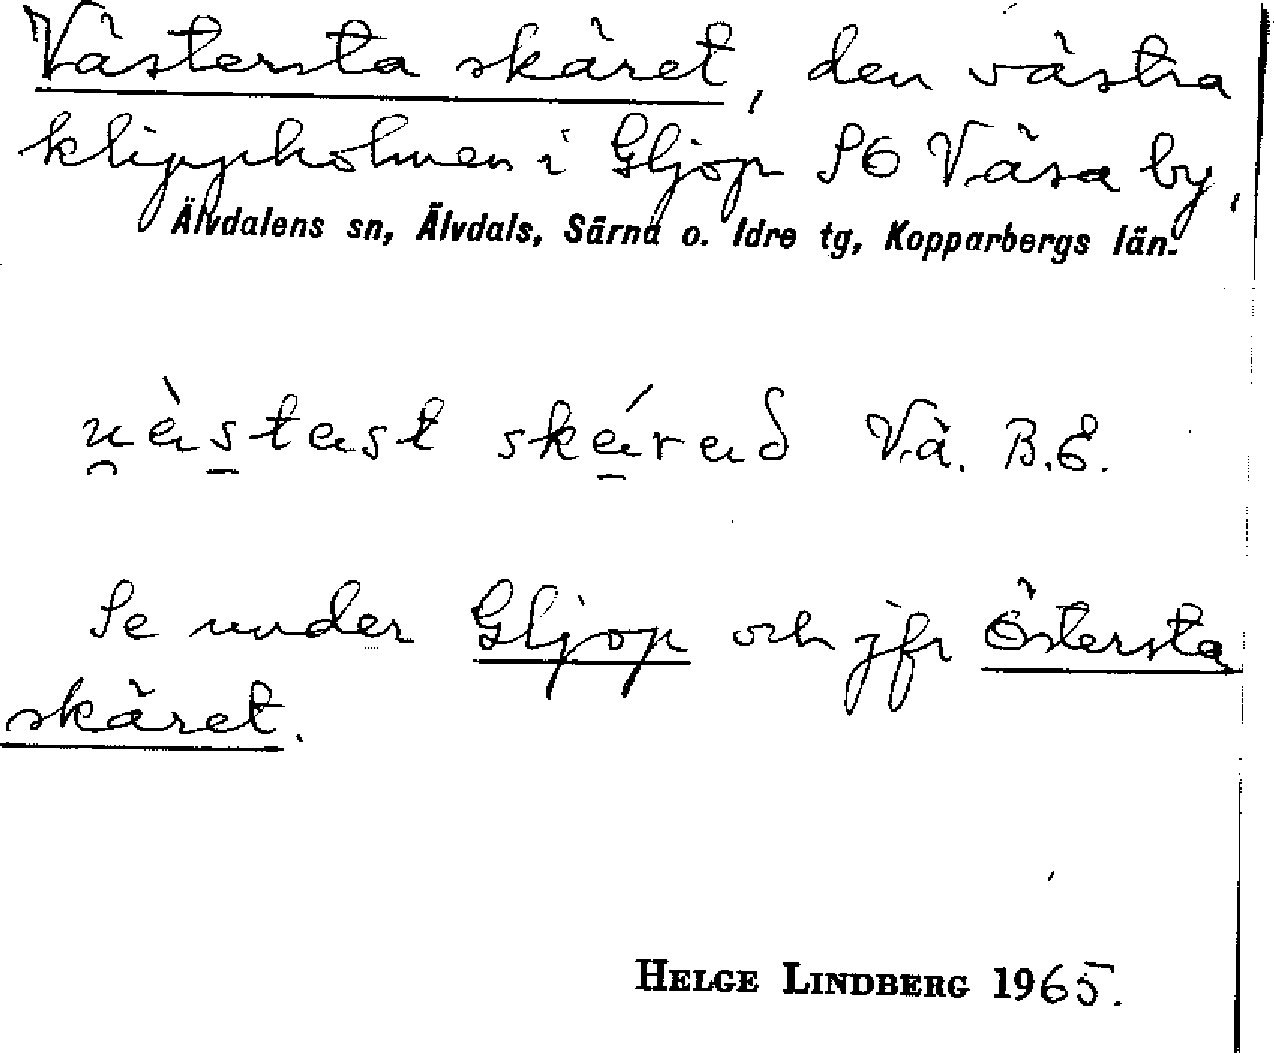 Västersta skäret, den västra
klippholmen i Gljop SÖ Väsa by,
Älvdalens sn, Älvdals, Särna o. Idre tg, Kopparbergs län.
Vä. B.E.
Se under Gljop och jfr Östersta
skäret.
HELGE LINDBERG 1965.